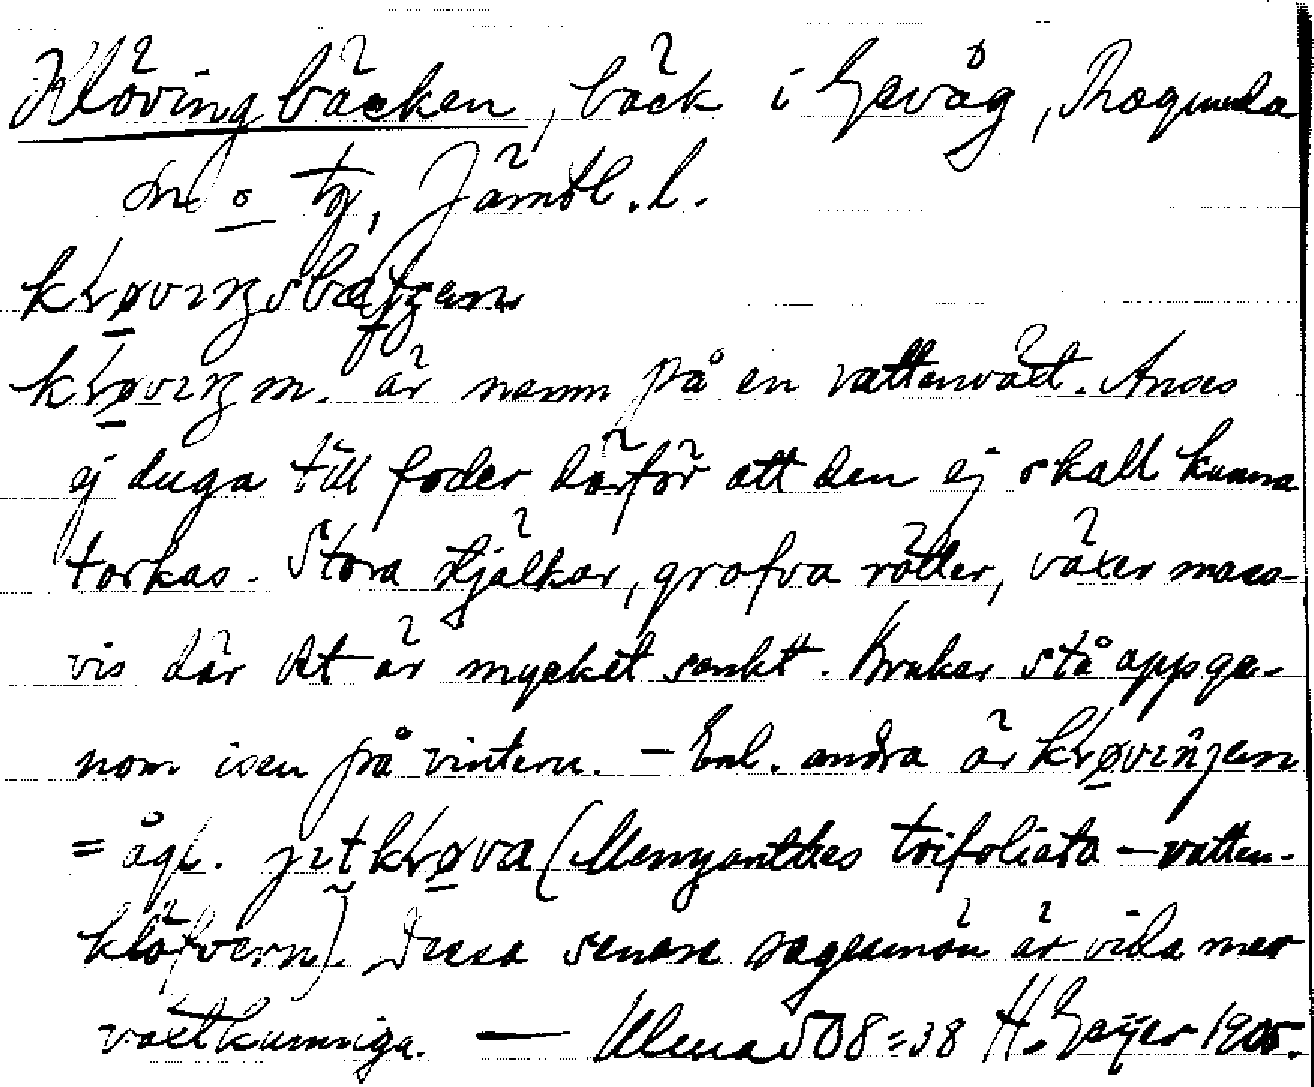 Klövingbäcken, bäck i Gevåg, Ragunda
sn o tg, Jämtl. l.
kḷøviŋsbæƫʃen
kḷøviŋ m. är namn på en vattenväxt. Anses
ej duga till foder därför att den ej skall kunna
torkas. Stora stjälkar, grofva rötter, växer mass-
vis där det är mycket sankt. Brukar stå uppge-
nom isen på vintern. — Enl. andra är kḷøviŋen
= ågs. jetkḷøva (Menyanthes trifoliata — vatten-
klöfvern). Dessa senare sagesmän är vida mer
växtkunniga. — Ulma 508:38 H. Geijer 1905.